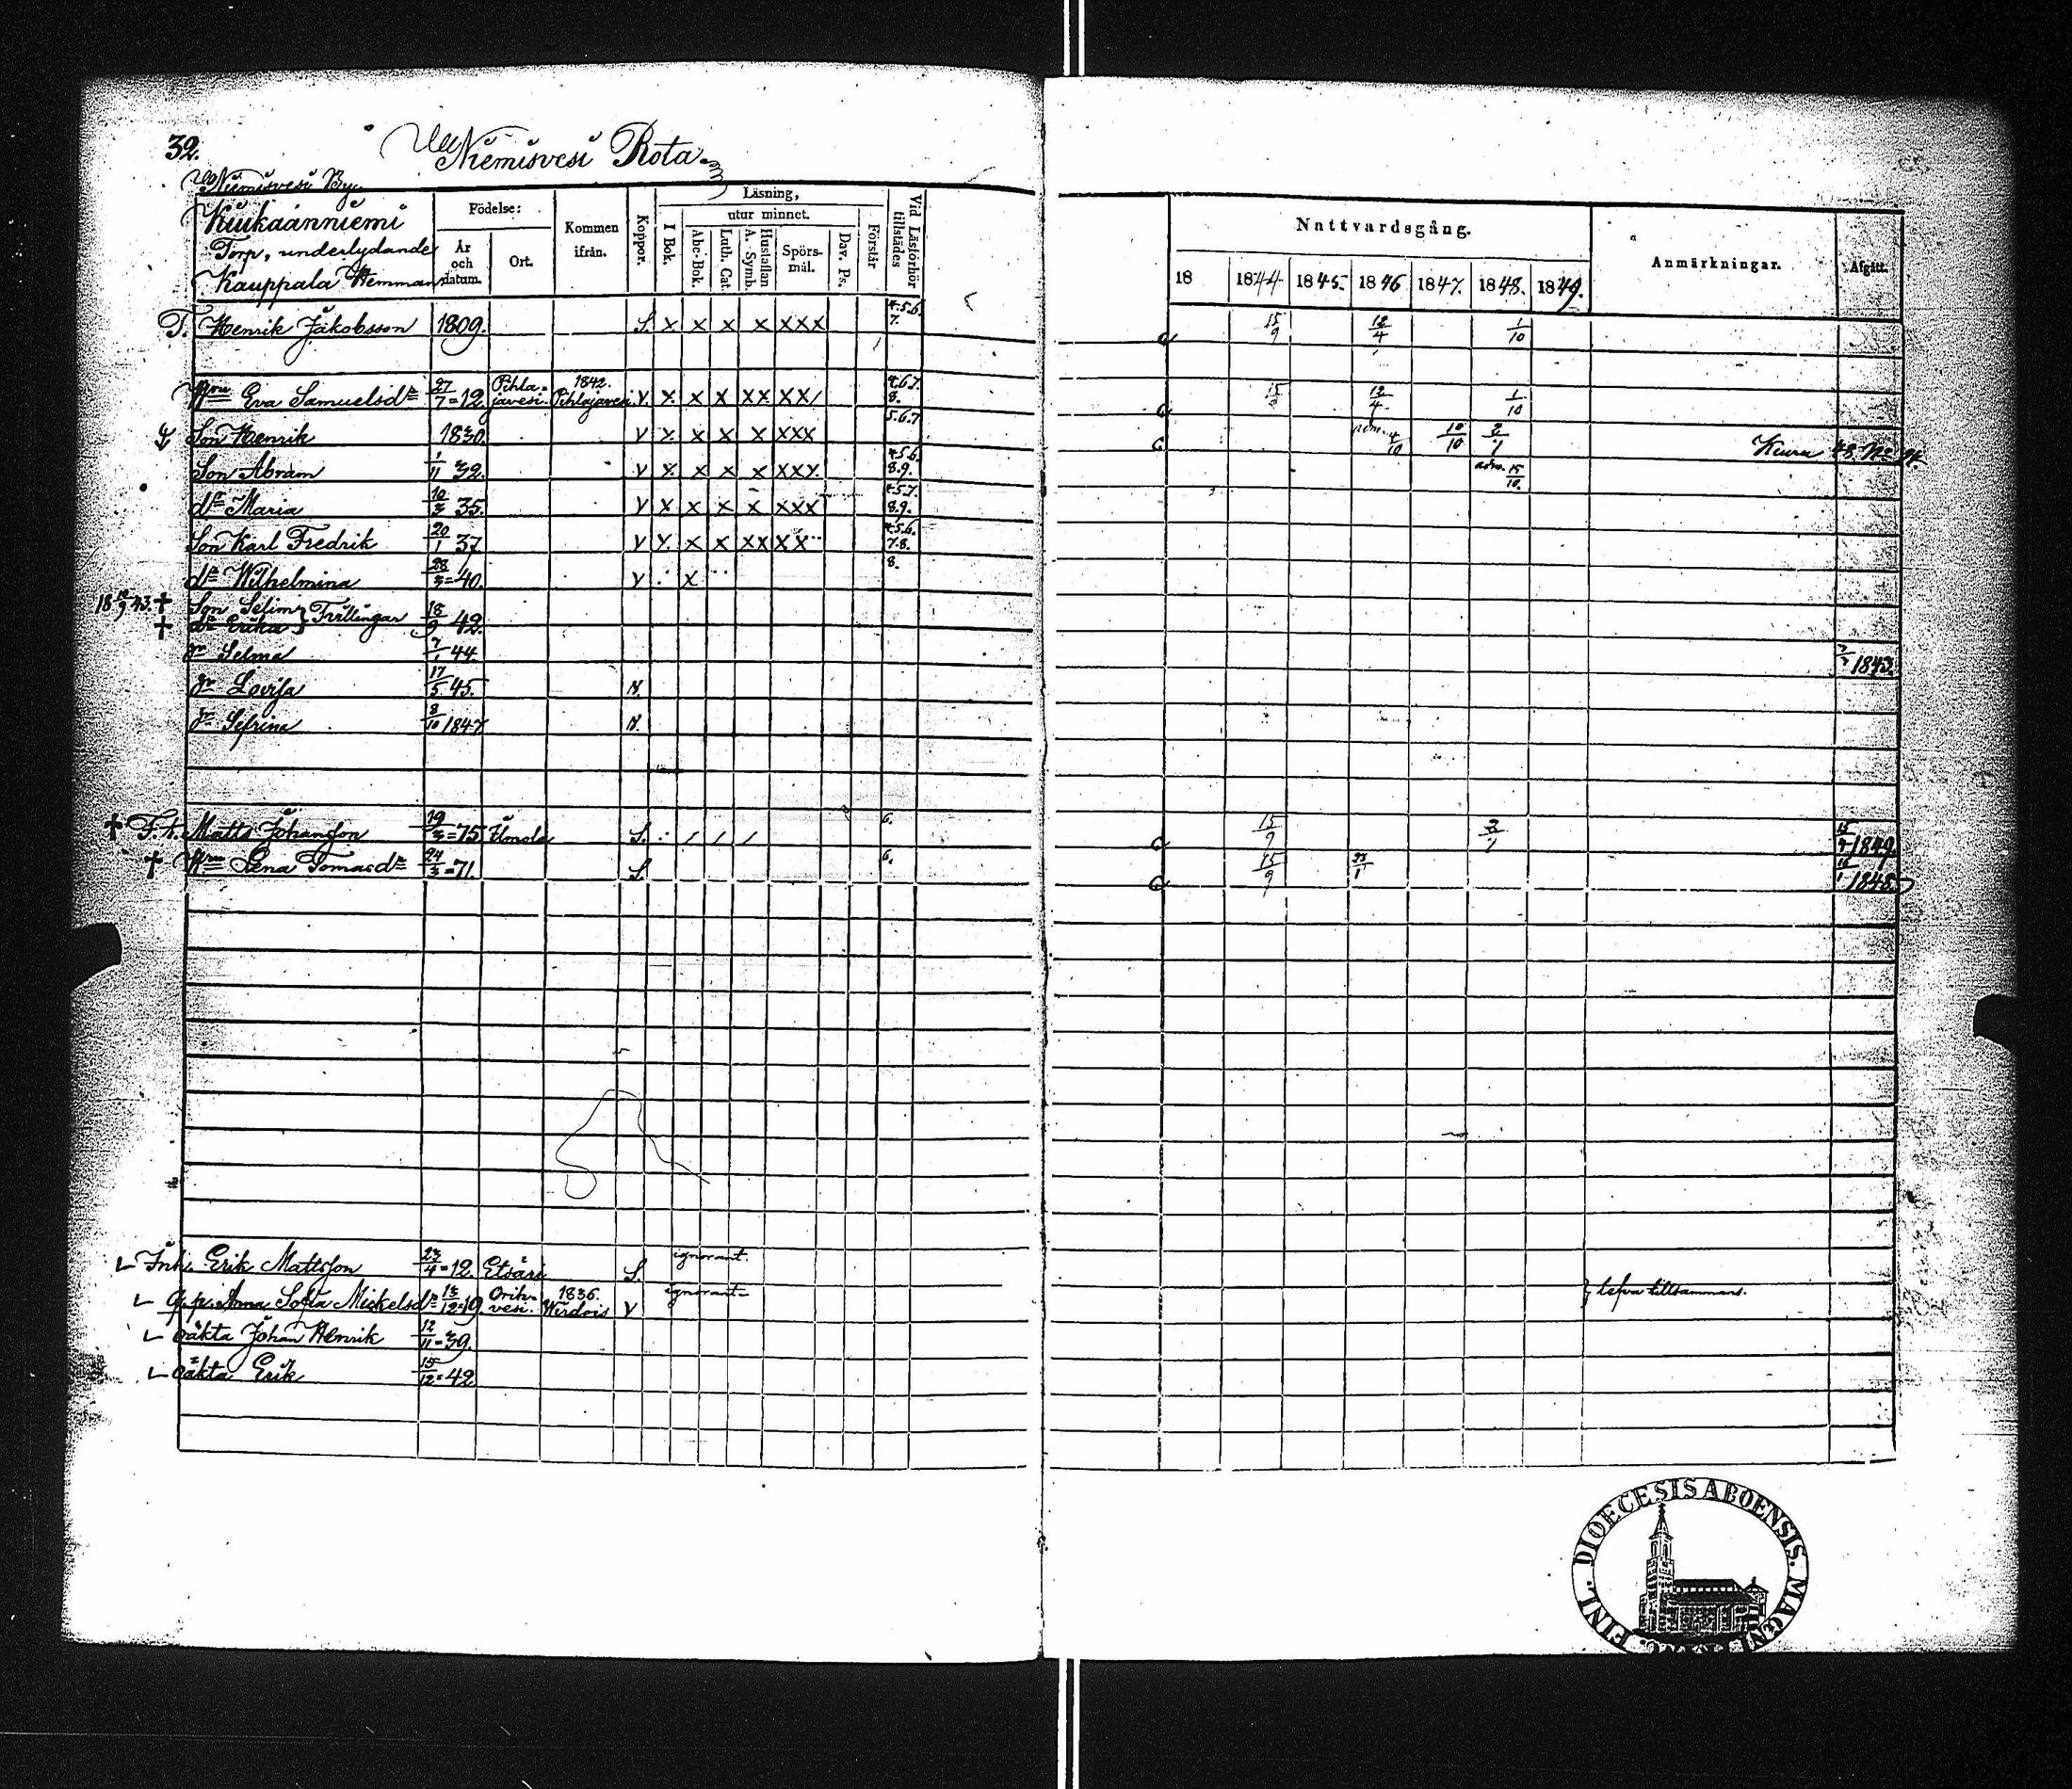 32.
Niemisvesi Rota
Niemisvesi By
Kiukaanniemi
Torp, underlydande
Kauppala Hemman
Födelse:
År och datum.
Ort.
Kommen ifrån.
Koppor.
Läsning,
I Bok.
utur minnet.
Abc-Bok.
Luth. Cat.
Hustaflan A. Symb.
Spörs-mål.
Dav. Ps.
Förstår
Vid Läsförhör tillstädes
Nattvardsgång.
18 1844 1845. 1846 1847. 1848. 1849.
Anmärkningar.
Afgått.
T. Henrik Jakobsson 1809. S. x x x x xxx 4.5.6.7. 15/9 12/4 1/10
Hru Eva Samuelsdr 27/7=12 Pihla-javesi 1842. Pihlajavesi V. x x x xx xx/ 4.6.7.8. 15/9 12/4 1/10
Son Henrik 1830. V x x x x xxx 5.6.7 adm. 4/10 10/10 2/1 Keuru 48 No
Son Abram 1/11 32. V x x x x xxx 4.5.6.8.9. adm. 15/10.
dr Maria 10/3 35. V x x x x xxx 4.5.7.8.9.
Son Karl Fredrik 20/1 37 V x x x xx xx 4.5.6.7.8.
dr Wilhelmina 28/3=40. V x 8.
† Son Selim } Tvillingar 18/9 42.
† dr Erika
dr Selma 7/1 44. 1843.
dr Lovisa 17/5 45. N.
dr Sefrina 8/10 1847 N.
† F.t. Matts Johansson 19/3=75. S. 6. 15/9 2/1 1849.
† Hru Lena Tomasdr 24/3=71. S. 6. 15/9 1848.
Inh. Erik Mattsson 23/4=12. Etsäri S. ignorant.
q.p. Anna Sofia Mickelsdr 13/12=19. Orih-vesi. 1836. Wirdois V ignorant } lefva tillsammans.
oäkta Johan Henrik 12/11=39.
oäkta Erik 15/12=42
DIOECESIS ABOENSIS. MAGNI
FINL.